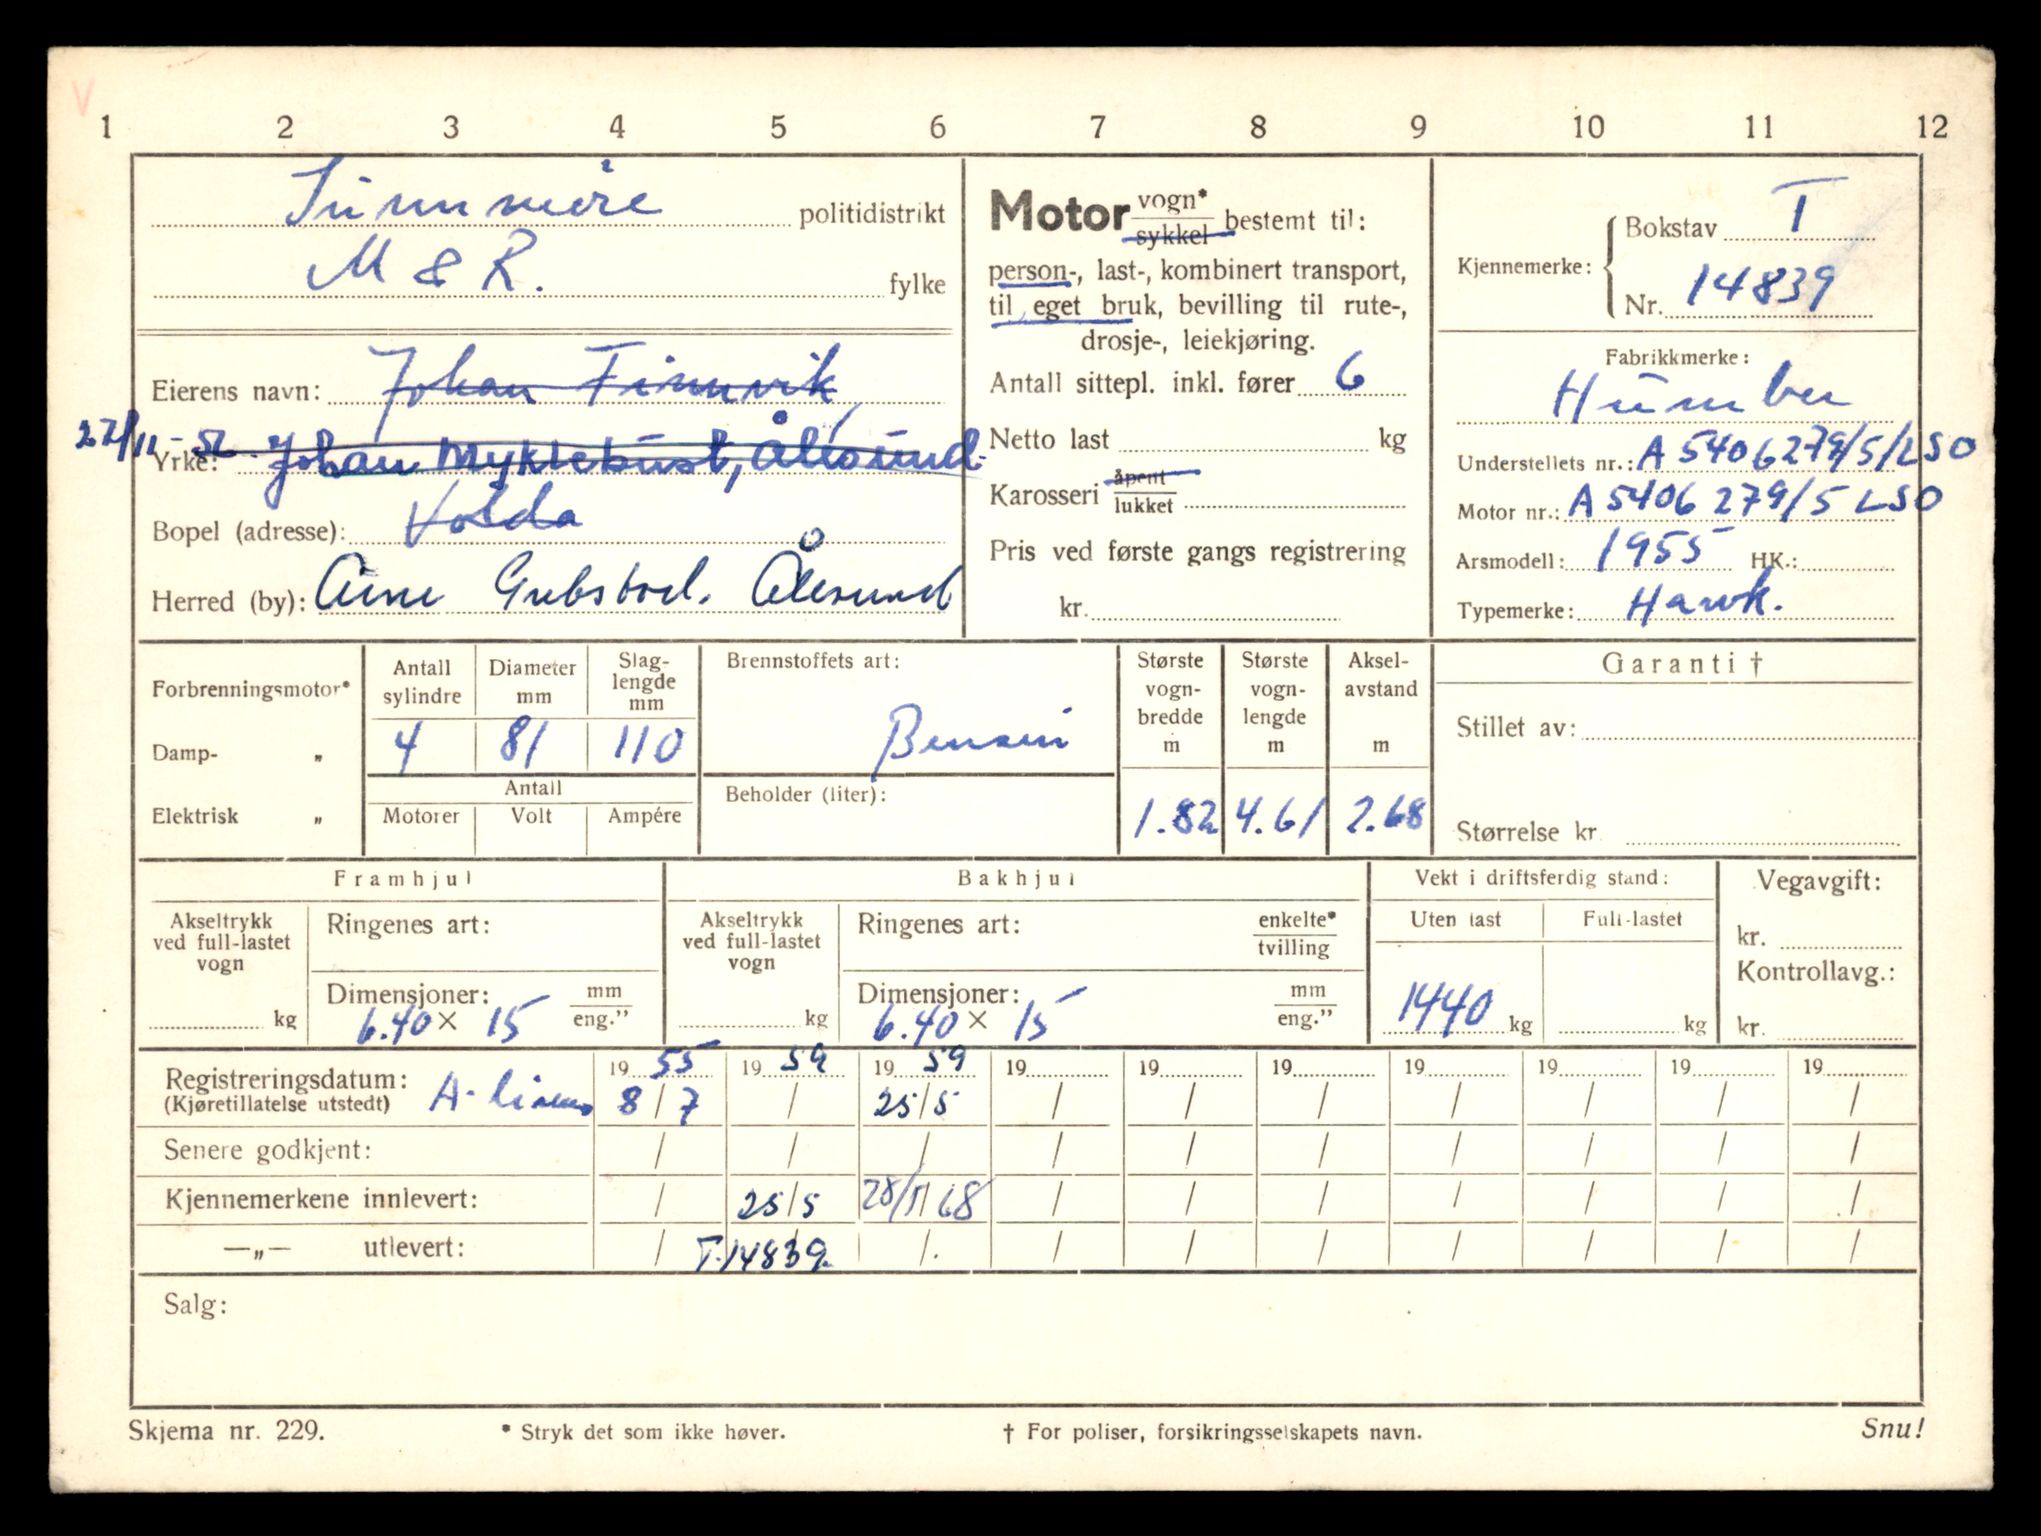 V
1 2 3 4 5 6 7 8 9 10 11 12
Sunnmøre politidistrikt
M & R. fylke
Eierens navn: Johan Finnvik
Yrke: Johan Myklebust, Ålesund.
Bopel (adresse): Volda
Herred (by): Arne Grebstad. Ålesund
Motor vogn* sykkel bestemt til:
person-, last-, kombinert transport,
til eget bruk, bevilling til rute-,
drosje-, leiekjøring.
Antall sittepl. inkl. fører 6
Netto last kg
Karosseri åpent lukket
Pris ved første gangs registrering
kr.
Kjennemerke: Bokstav T
Nr. 14839
Fabrikkmerke:
Humber
Understellets nr.: A 5406279/5/LSO
Motor nr.: A 5406279/5 LSO
Arsmodell: 1955 HK.:
Typemerke: Hawk.
Forbrenningsmotor*
Damp- „
Elektrisk „
Antall sylindre Diameter mm Slag-lengde mm
4 81 110
Antall
Motorer Volt Ampére
Brennstoffets art:
Bensin
Beholder (liter):
Største vogn-bredde m Største vogn-lengde m Aksel-avstand m
1.82 4.61 2.68
Garanti †
Stillet av:
Størrelse kr.
Framhjul
Akseltrykk ved full-lastet vogn
kg
Ringenes art:
Dimensjoner: mm eng."
6.40 × 15
Bakhjul
Akseltrykk ved full-lastet vogn
kg
Ringenes art: enkelte* tvilling
Dimensjoner: mm eng."
6.40 × 15
Vekt i driftsferdig stand:
Uten last Full-lastet
1440 kg kg
Vegavgift:
kr.
Kontrollavg.:
kr.
19 55 19 59 19 59 19 19 19 19 19 19 19
Registreringsdatum: 8/7 / 25/5 / / / / / / /
(Kjøretillatelse utstedt)
Senere godkjent: / / / / / / / / / /
Kjennemerkene innlevert: / 25/5 / / / / / / /
—„— utlevert: / T-14839. / / / / / / / /
Salg:
Skjema nr. 229.
* Stryk det som ikke høver.
† For poliser, forsikringsselskapets navn.
Snu!